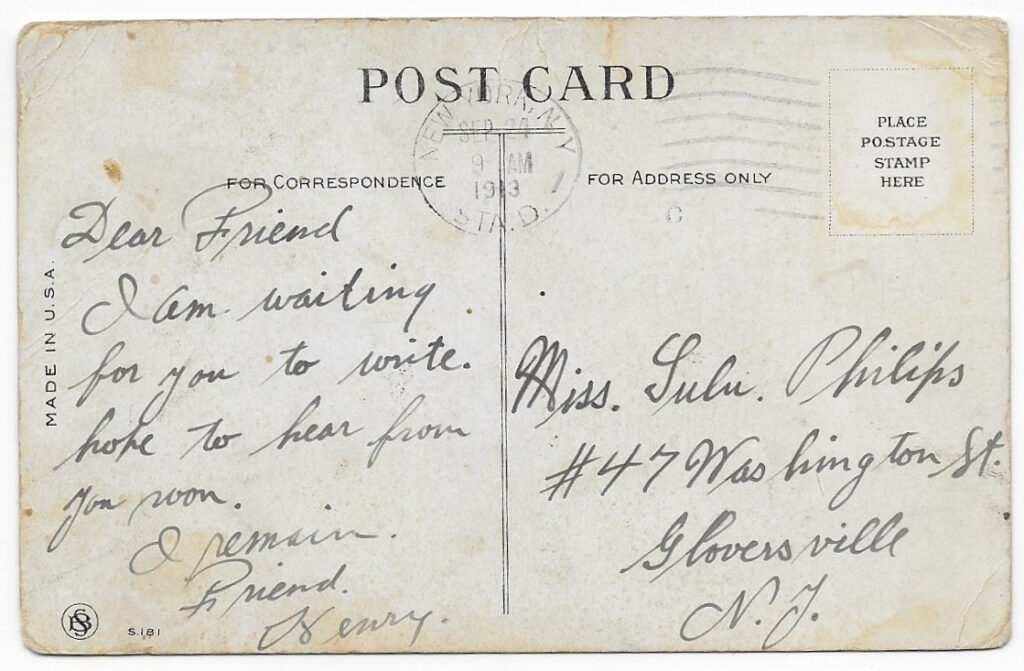 POST CARD
NEW YORK, N.Y.
SEP 24
9 AM
1913
STA. D.
PLACE
POSTAGE
STAMP
HERE
FOR CORRESPONDENCE
FOR ADDRESS ONLY
C
MADE IN U.S.A.
Dear Friend
I am waiting
for you to write.
hope to hear from
you soon.
I remain.
Friend.
Henry.
Miss. Lulu. Philips
#47 Washington St.
Gloversville
N.Y.
S.181